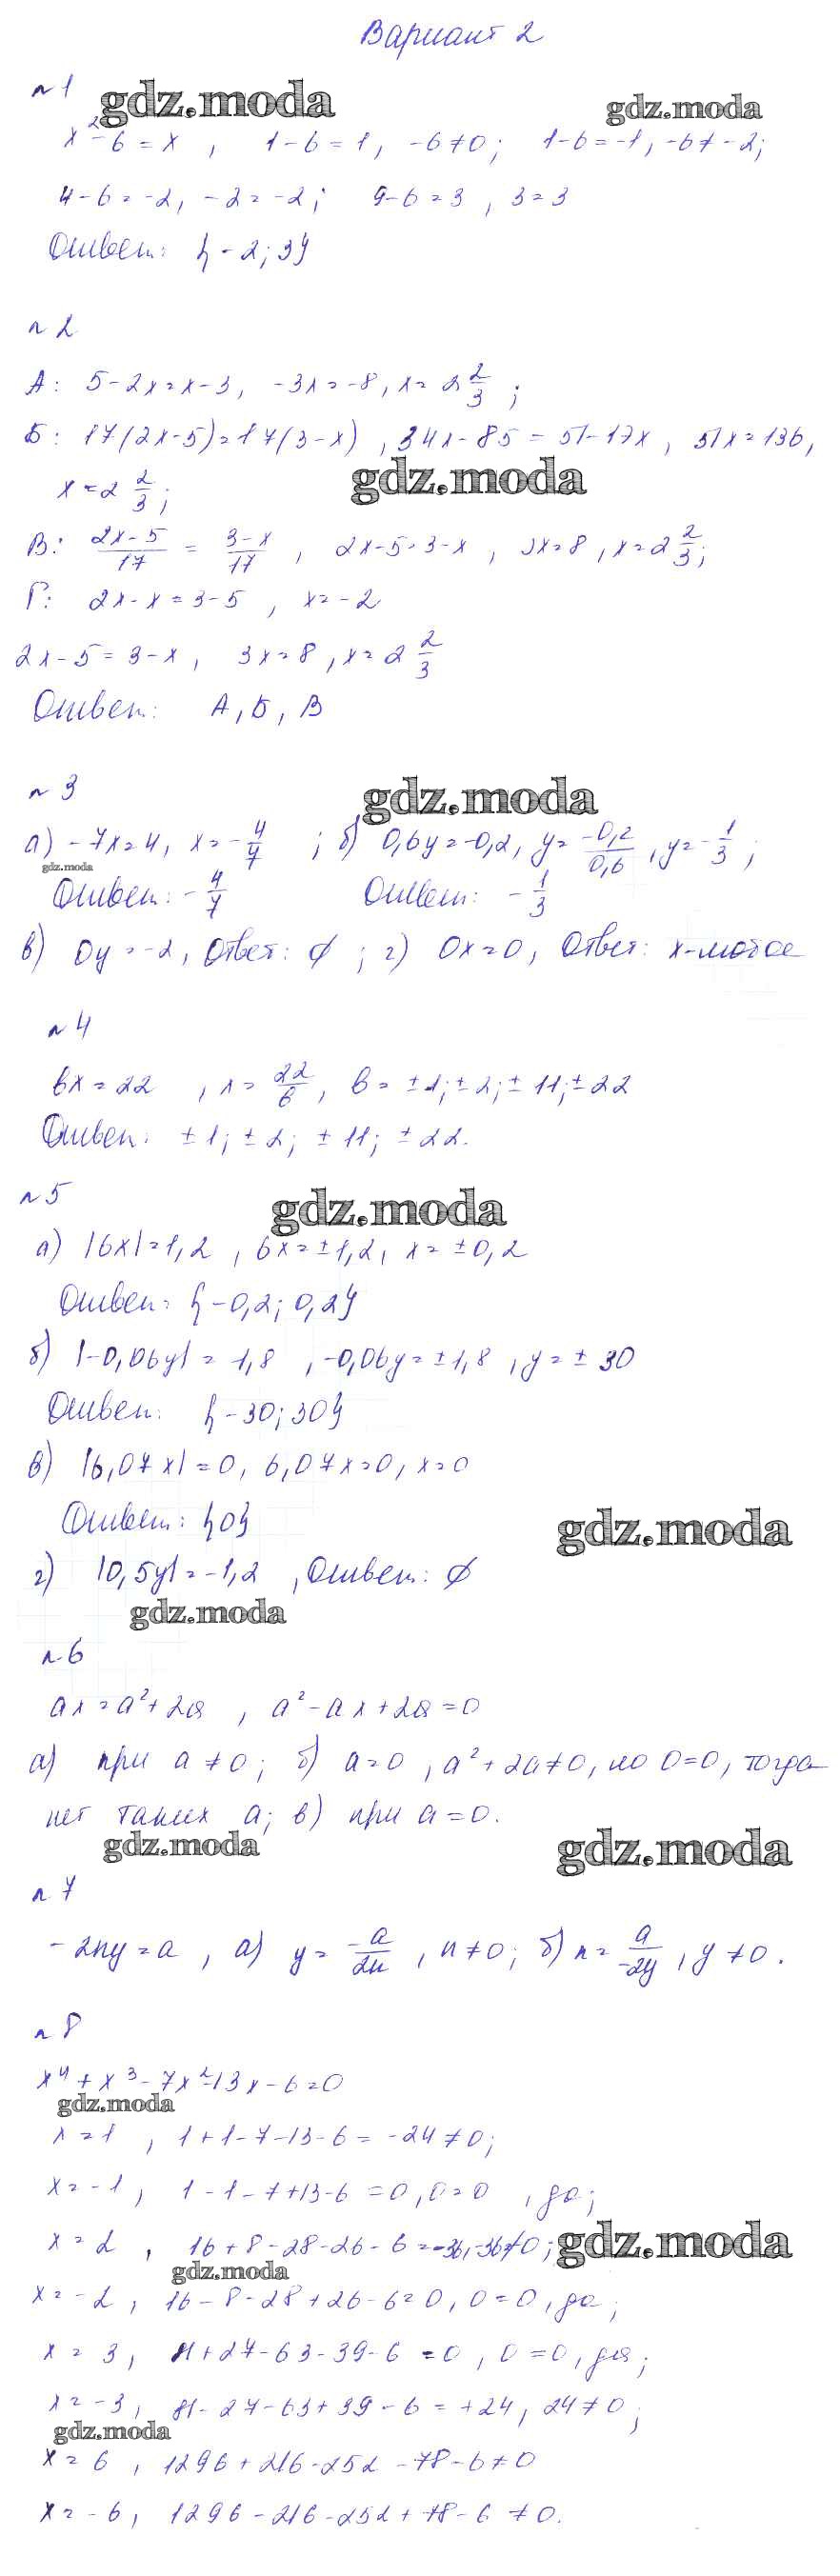 Вариант 2
n 1
gdz.moda gdz.moda
x² - 6 = x , 1-6=1, -6≠0; 1-6=-1, -6≠-2;
4-6=-2, -2=-2; 9-6=3, 3=3
Ответ: {-2; 3}
n 2
А: 5-2x=x-3, -3x=-8, x=2 2/3 ;
Б: 17(2x-5)=17(3-x) , 34x-85=51-17x , 51x=136,
x=2 2/3 ;
gdz.moda
В: (2x-5)/17 = (3-x)/17 , 2x-5=3-x , 3x=8, x=2 2/3;
Г: 2x-x=3-5 , x=-2
2x-5=3-x, 3x=8, x=2 2/3
Ответ: А, Б, В
n 3
gdz.moda
а) -7x=4, x=-4/7 ; б) 0,6y=-0,2, y=-0,2/0,6, y=-1/3 ;
gdz.moda
Ответ: -4/7 Ответ: -1/3
в) 0y=-2, Ответ: ∅ ; г) 0x=0, Ответ: x-любое
n 4
bx=22 , x=22/b, b=±1; ±2; ±11; ±22
Ответ: ±1; ±2; ±11; ±22.
n 5
gdz.moda
а) |6x|=1,2 , 6x=±1,2, x=±0,2
Ответ: {-0,2; 0,2}
б) |-0,06y|=1,8 , -0,06y=±1,8 , y=±30
Ответ: {-30; 30}
в) |6,07x|=0, 6,07x=0, x=0
Ответ: {0}
gdz.moda
г) |0,5y|=-1,2 , Ответ: ∅
gdz.moda
n 6
ax=a²+2a , a²-ax+2a=0
а) при a≠0; б) a=0 , a²+2a≠0, но 0=0, тогда
нет таких a; в) при a=0.
gdz.moda gdz.moda
n 7
-2ny=a , а) y=-a/2n , n≠0; б) n=a/-2y , y≠0.
n 8
x⁴+x³-7x²-13x-6=0
gdz.moda
x=1 , 1+1-7-13-6=-24≠0;
x=-1, 1-1-7+13-6=0, 0=0 , да;
x=2 , 16+8-28-26-6=-36, -36≠0;
gdz.moda
gdz.moda
x=-2, 16-8-28+26-6=0, 0=0, да;
x=3, 81+27-63-39-6=0, 0=0, да;
x=-3, 81-27-63+39-6=+24, 24≠0;
gdz.moda
x=6 , 1296+216-252-78-6≠0
x=-6, 1296-216-252+78-6≠0.